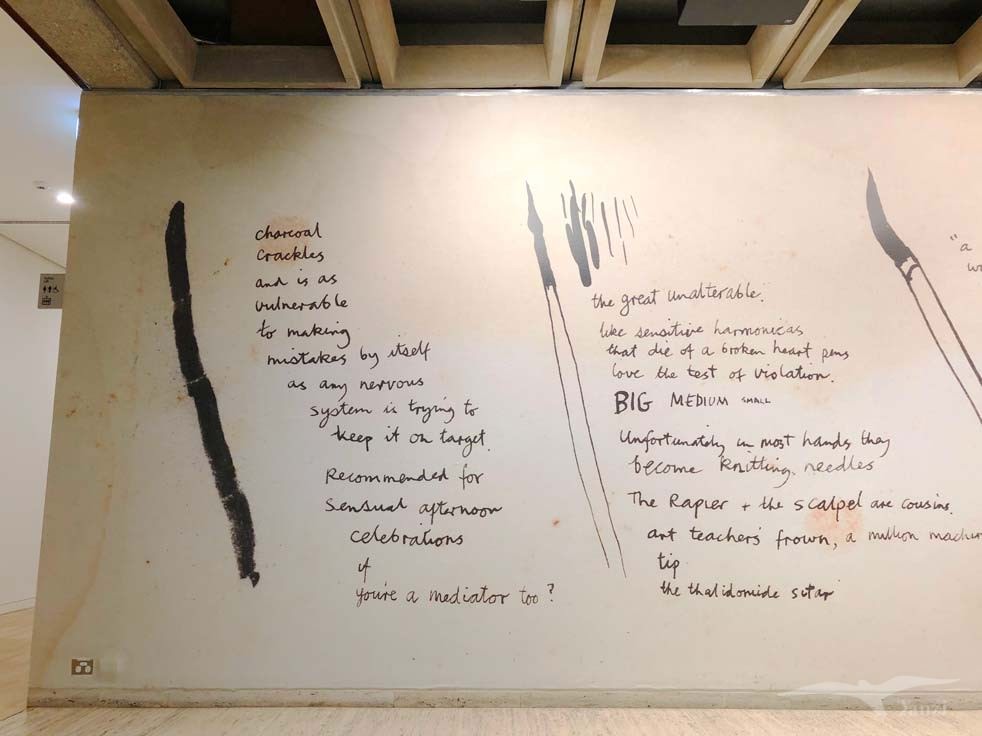 charcoal
crackles
and is as
vulnerable
to making
mistakes by itself
as any nervous
system is trying to
keep it on target.
Recommended for
sensual afternoon
celebrations
if
you're a mediator too?
the great unalterable.
like sensitive harmonicas
that die of a broken heart pens
love the test of violation.
BIG MEDIUM SMALL
Unfortunately in most hands they
become knitting needles
The Rapier + the scalpel are cousins.
art teacher's frown, a million
tip
the thalidomide sitar
"a
Yanzi